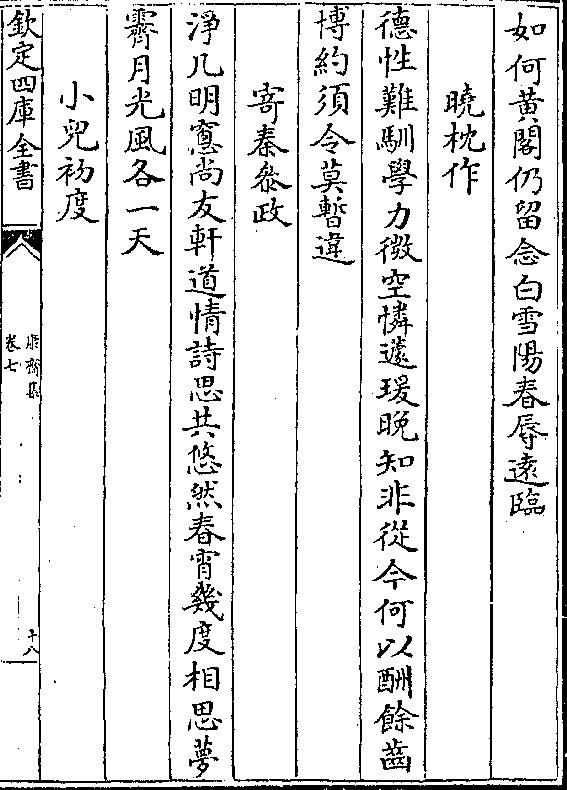 如何黄閣仍留念白雪陽春辱遠臨
曉枕作
德性難馴學力微空憐蘧瑗晚知非從今何以酬餘齒
博約須令莫暫違
寄秦叅政
淨几明窻尚友軒道情詩思共悠然春宵幾度相思夢
霽月光風各一天
小兒初度
欽定四庫全書
卷七
十八